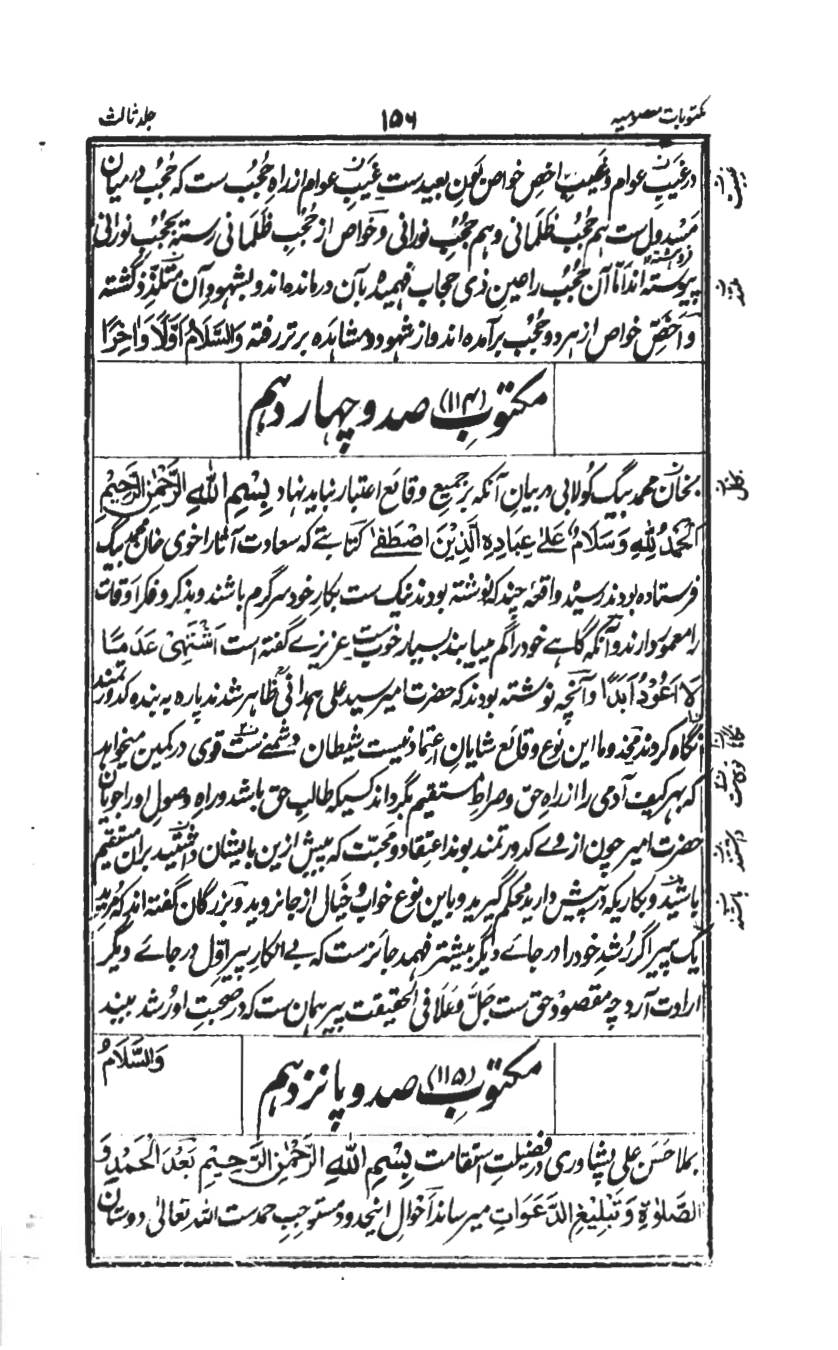 مکتوبات معصومیہ ۱۵۶ جلد ثالث
در غیبِ عوام و غیبِ اخصِ خواص بَون بعید ست غیبِ عوام از راہِ حُجُب ست کہ حُجُب درمیان
مسدول ست ہم حُجُبِ ظلمانی و ہم حُجُبِ نورانی و خواص از حُجُبِ ظلمانی رستہ بحُجُبِ نورانی
پیوستہ اند امّا آن حُجُب را عین ذی حجاب فہمیدہ بآن درماندہ اند و بشہودِ آن متلذّذ گشتہ
و اخصِّ خواص از ہر دو حُجُب برآمدہ اند و از شہود و مشاہدہ برتر رفتہ وَالسَّلَامُ اَوَّلًا وَاٰخِرًا
مکتوبِ (۱۱۴) صد و چہار دہم
بخان محمد بیگ کولابی در بیانِ آنکہ بر جمیعِ وقائع اعتبار نباید نہاد بِسْمِ اللهِ الرَّحْمٰنِ الرَّحِیْمِ
اَلْحَمْدُ لِلّٰهِ وَسَلَامٌ عَلٰی عِبَادِهِ الَّذِیْنَ اصْطَفٰی کتابتے کہ سعادت آثار اخوی خان محمد بیگ
فرستادہ بودند رسید واقعۂ چند کہ نوشتہ بودند نیک ست بکارِ خود سرگرم باشند و بذکر و فکر اوقات
را معمور دارند و آنکہ گاہے خود را گم مییابند بسیار خوب ست عزیزے گفتہ است اَشْتَهِیْ عَدَمًا
لَا اَعُوْدُ اَبَدًا و آنچہ نوشتہ بودند کہ حضرت امیر سید علی ہمدانی ظاہر شدند پارہ بہ بندہ کدورتمند
نگاہ کردند مخدوما این نوع وقائع شایانِ اعتماد نیست شیطان دشمنے ست قوی در کمین میخواہد
کہ بہر کیف آدمی را از راہِ حق و صراطِ مستقیم بگرداند کسیکہ طالبِ حق باشد و راہِ وصول او را جویان
حضرت امیر چون از وے کدورتمند بوند اعتقاد و محبت کہ پیش ازین بایشان داشتید بران مستقیم
باشید و بکاریکہ در پیش دارید محکم گیرید و باین نوع خواب و خیال از جا نروید و بزرگان گفتہ اند کہ مُریدِ
یک پیر اگر رُشدِ خود را در جائے دیگر بیشتر فہمد جائز ست کہ بے انکارِ پیرِ اوّل در جائے دیگر
ارادت آرد چہ مقصود حق ست جَلَّ وَعَلَا فی الحقیقت پیر ہمان ست کہ در صحبتِ او رُشد بیند
وَالسَّلَامُ
مکتوبِ (۱۱۵) صد و پانزدہم
بملا حَسَن علی پشاوری در فضیلتِ استقامت بِسْمِ اللهِ الرَّحْمٰنِ الرَّحِیْمِ بَعْدَ الْحَمْدِ وَ
الصَّلٰوةِ وَتَبْلِیْغِ الدَّعَوَاتِ میرساند احوالِ اینحدود مستوجبِ حمد ست اللہ تعالیٰ دوستان